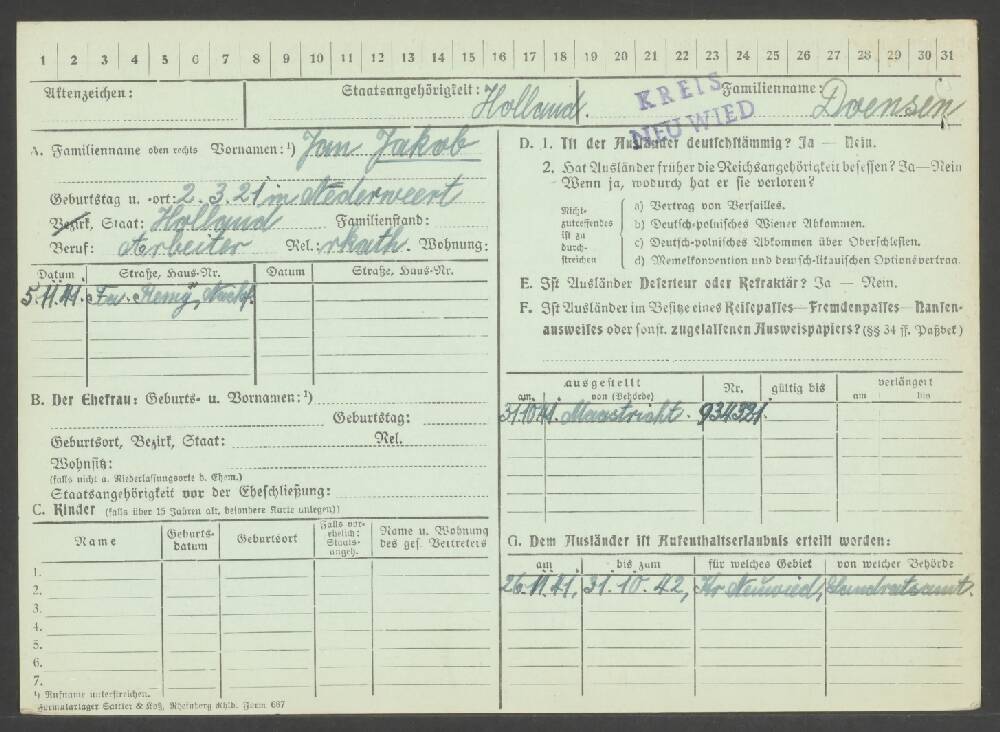 1 2 3 4 5 6 7 8 9 10 11 12 13 14 15 16 17 18 19 20 21 22 23 24 25 26 27 28 29 30 31
Aktenzeichen: Staatsangehörigkeit: Holland. KREIS NEUWIED Familienname: Doensen
A. Familienname oben rechts Vornamen:¹) Jan Jakob
Geburtstag u. -ort: 2.3.21 in Nederweert
Bezirk, Staat: Holland Familienstand:
Beruf: Arbeiter Rel.: rkath. Wohnung:
Datum Straße, Haus-Nr. Datum Straße, Haus-Nr.
5.11.41. Fa. Remy, Nachf.
B. Der Ehefrau: Geburts- u. Vornamen:¹)
Geburtstag:
Geburtsort, Bezirk, Staat: Rel.
Wohnsitz:
(falls nicht a. Niederlassungsorte d. Ehem.)
Staatsangehörigkeit vor der Eheschließung:
C. Kinder (falls über 15 Jahren alt, besondere Karte anlegen))
Name Geburts-datum Geburtsort Falls vor-ehelich: Staats-angeh. Name u. Wohnung des ges. Vertreters
1.
2.
3.
4.
5.
6.
7.
¹) Rufname unterstreichen.
Formularlager Sattler & Koß, Rheinberg Rhld. Form 667
D. 1. Ist der Ausländer deutschstämmig? Ja — Nein.
2. Hat Ausländer früher die Reichsangehörigkeit besessen? Ja—Nein
Wenn ja, wodurch hat er sie verloren?
Nicht-zutreffendes ist zu durch-streichen
a) Vertrag von Versailles.
b) Deutsch-polnisches Wiener Abkommen.
c) Deutsch-polnisches Abkommen über Oberschlesien.
d) Memelkonvention und deutsch-litauischen Optionsvertrag.
E. Ist Ausländer Deserteur oder Refraktär? Ja — Nein.
F. Ist Ausländer im Besitze eines Reisepasses—Fremdenpasses—Nansen-
ausweises oder sonst. zugelassenen Ausweispapiers? (§§ 34 ff. Paßbek)
ausgestellt Nr. gültig bis verlängert
am von (Behörde) am bis
31.10.41. Maastricht. 934321.
G. Dem Ausländer ist Aufenthaltserlaubnis erteilt worden:
am bis zum für welches Gebiet von welcher Behörde
26.11.41, 31.10.42, Kr Neuwied, Landratsamt.